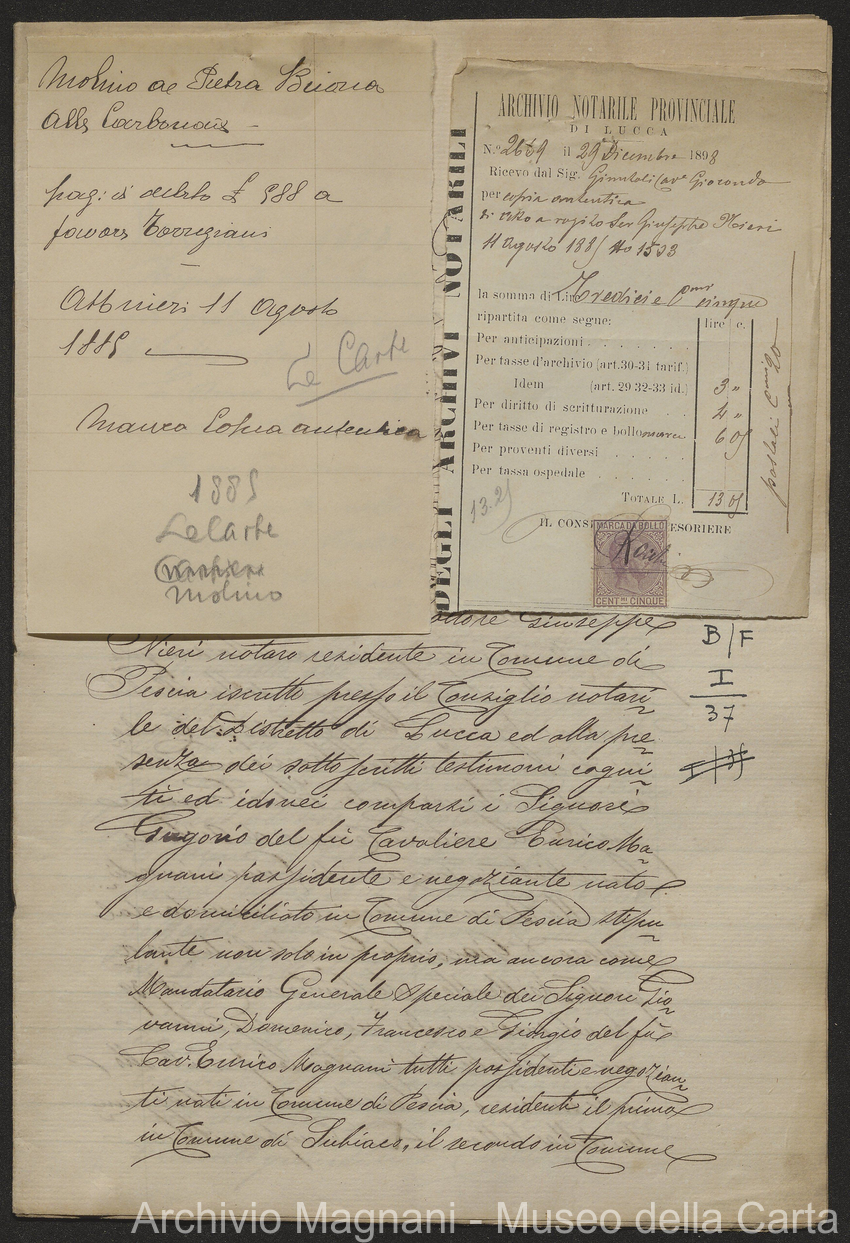 Molino a Pietra Buona
alle Carbonaie
pag: di debito £ 588 a
favore Torrigiani
Atto Nieri 11 Agosto
1885
Le Carte
Manca Copia autentica
1885
Le Carte
Molino
DEGLI ARCHIVI NOTARILI
ARCHIVIO NOTARILE PROVINCIALE
DI LUCCA
N.º il 29 Dicembre 1898
Ricevo dal Sig. Cav.e Giocondo
per copia autentica
a rogito Ser Giuseppe Nieri
11 Agosto 1885 No 1533
la somma di Lire Tredici e Cmi cinque
ripartita come segue:
lire c.
Per anticipazioni
Per tasse d'archivio (art. 30-31 tarif.)
Idem (art. 29 32-33 id.) 3 "
Per diritto di scritturazione 4 "
Per tasse di registro e bollo marca 6 05
Per proventi diversi
Per tassa ospedale
TOTALE L. 13 05
postali Cmi 20
13.25
IL CONS TESORIERE
MARCA DA BOLLO
CENT.MI CINQUE
Dottore Giuseppe
Nieri notaro residente in Comune di
Pescia iscritto presso il Consiglio notari
le del Distretto di Lucca ed alla pre
senza dei sottoscritti testimoni cogni
ti ed idonei comparsi i Signori
Gregorio del fu Cavaliere Enrico Ma
gnani possidente e negoziante nato
e domiciliato in Comune di Pescia stipu
lante non solo in proprio, ma ancora come
Mandatario Generale Speciale dei Signori Gio
vanni, Domenico, Francesco e Giorgio del fu
Cav. Enrico Magnani tutti possidenti e negozian
ti nati in Comune di Pescia, residenti il primo
in Comune di Subiaco, il secondo in Comune
B/F
I
37
Archivio Magnani - Museo della Carta